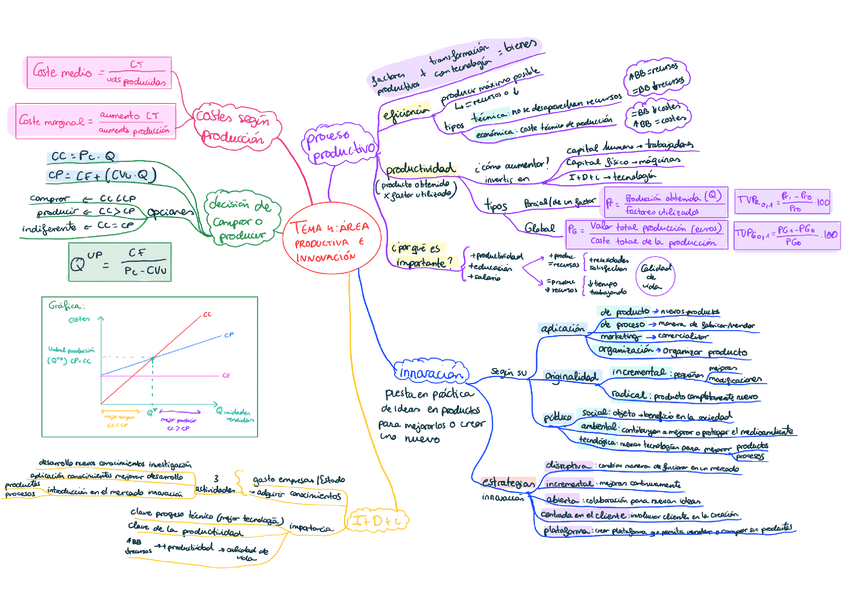 TEMA 4: ÁREA
PRODUCTIVA E
INNOVACIÓN
costes según
producción
Coste medio = CT / uds producidas
Coste marginal = aumento CT / aumento producción
decisión de
comprar o
producir
CC = Pc · Q
CP = CF + (CVu · Q)
opciones
comprar ← CC < CP
producir ← CC > CP
indiferente ← CC = CP
Q UP = CF / Pc - CVu
Gráfica:
costes
CC
CP
CF
(Q UP) CP = CC
mejor comprar
CC < CP
Q*
mejor producir
CC > CP
Q unidades
vendidas
proceso
productivo
factores productivos + transformación con tecnología = bienes
eficiencia
producir máximo posible
↳ = recursos o ↓
tipos
técnica: no se desaprovechan recursos
económica: coste técnico de producción
ABB = recursos
= BB
= BB
ABB = costes
productividad
(producto obtenido
x factor utilizado)
¿cómo aumentar?
invertir en
capital humano → trabajadores
Capital físico → máquinas
I+D+i → tecnología
tipos
Parcial (de un factor)
Producción obtenida (Q) / Factores utilizados
100
Global
PG = Valor total producción (euros) / Coste total de la producción
PG1 - PG0 / PG0 · 100
¿por qué es
importante?
+ productividad
+ educación
+ salario
= recursos
+ necesidades
satisfechas
↓ recursos
↓ tiempo
trabajando
Calidad
de
vida
innovación
puesta en práctica
de ideas en productos
para mejorarlos o crear
uno nuevo
según su
aplicación
de producto → nuevos productos
de proceso → manera de fabricar/vender
marketing → comercializar
organización → organizar producto
originalidad
incremental: pequeñas mejoras
modificaciones
radical: producto completamente nuevo
público
social: objeto → beneficio en la sociedad
ambiental: contribuyen a mejorar o proteger el medioambiente
tecnológica: nuevas tecnologías para mejorar productos
procesos
estrategias
innovación
disruptiva: cambiar manera de funcionar en un mercado
incremental: mejoran continuamente
abierta: colaboración para nuevas ideas
centrada en el cliente: involucrar cliente en la creación
plataforma: crear plataforma q permita vender o comprar sus productos
I+D+i
gasto empresas/Estado
→ adquirir conocimientos
3
actividades
desarrollo nuevos conocimientos investigación
aplicación conocimientos mejorar desarrollo
productos
procesos
introducción en el mercado innovación
importancia
clave progreso técnico (mejor tecnología)
clave de la productividad
ABB
↓recursos → + productividad → calidad de
vida